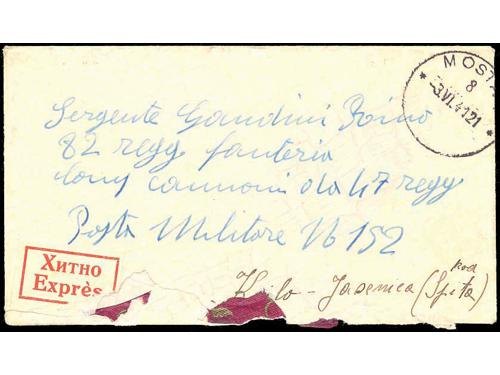 MOSTA
8
-3.VI.41 21
Sergente Gandini Zoino
82 regg fanteria
Comp cannoni da 47 regg
Posta Militare N 152
Хитно
Exprès
Jasenica (Spita)
pod